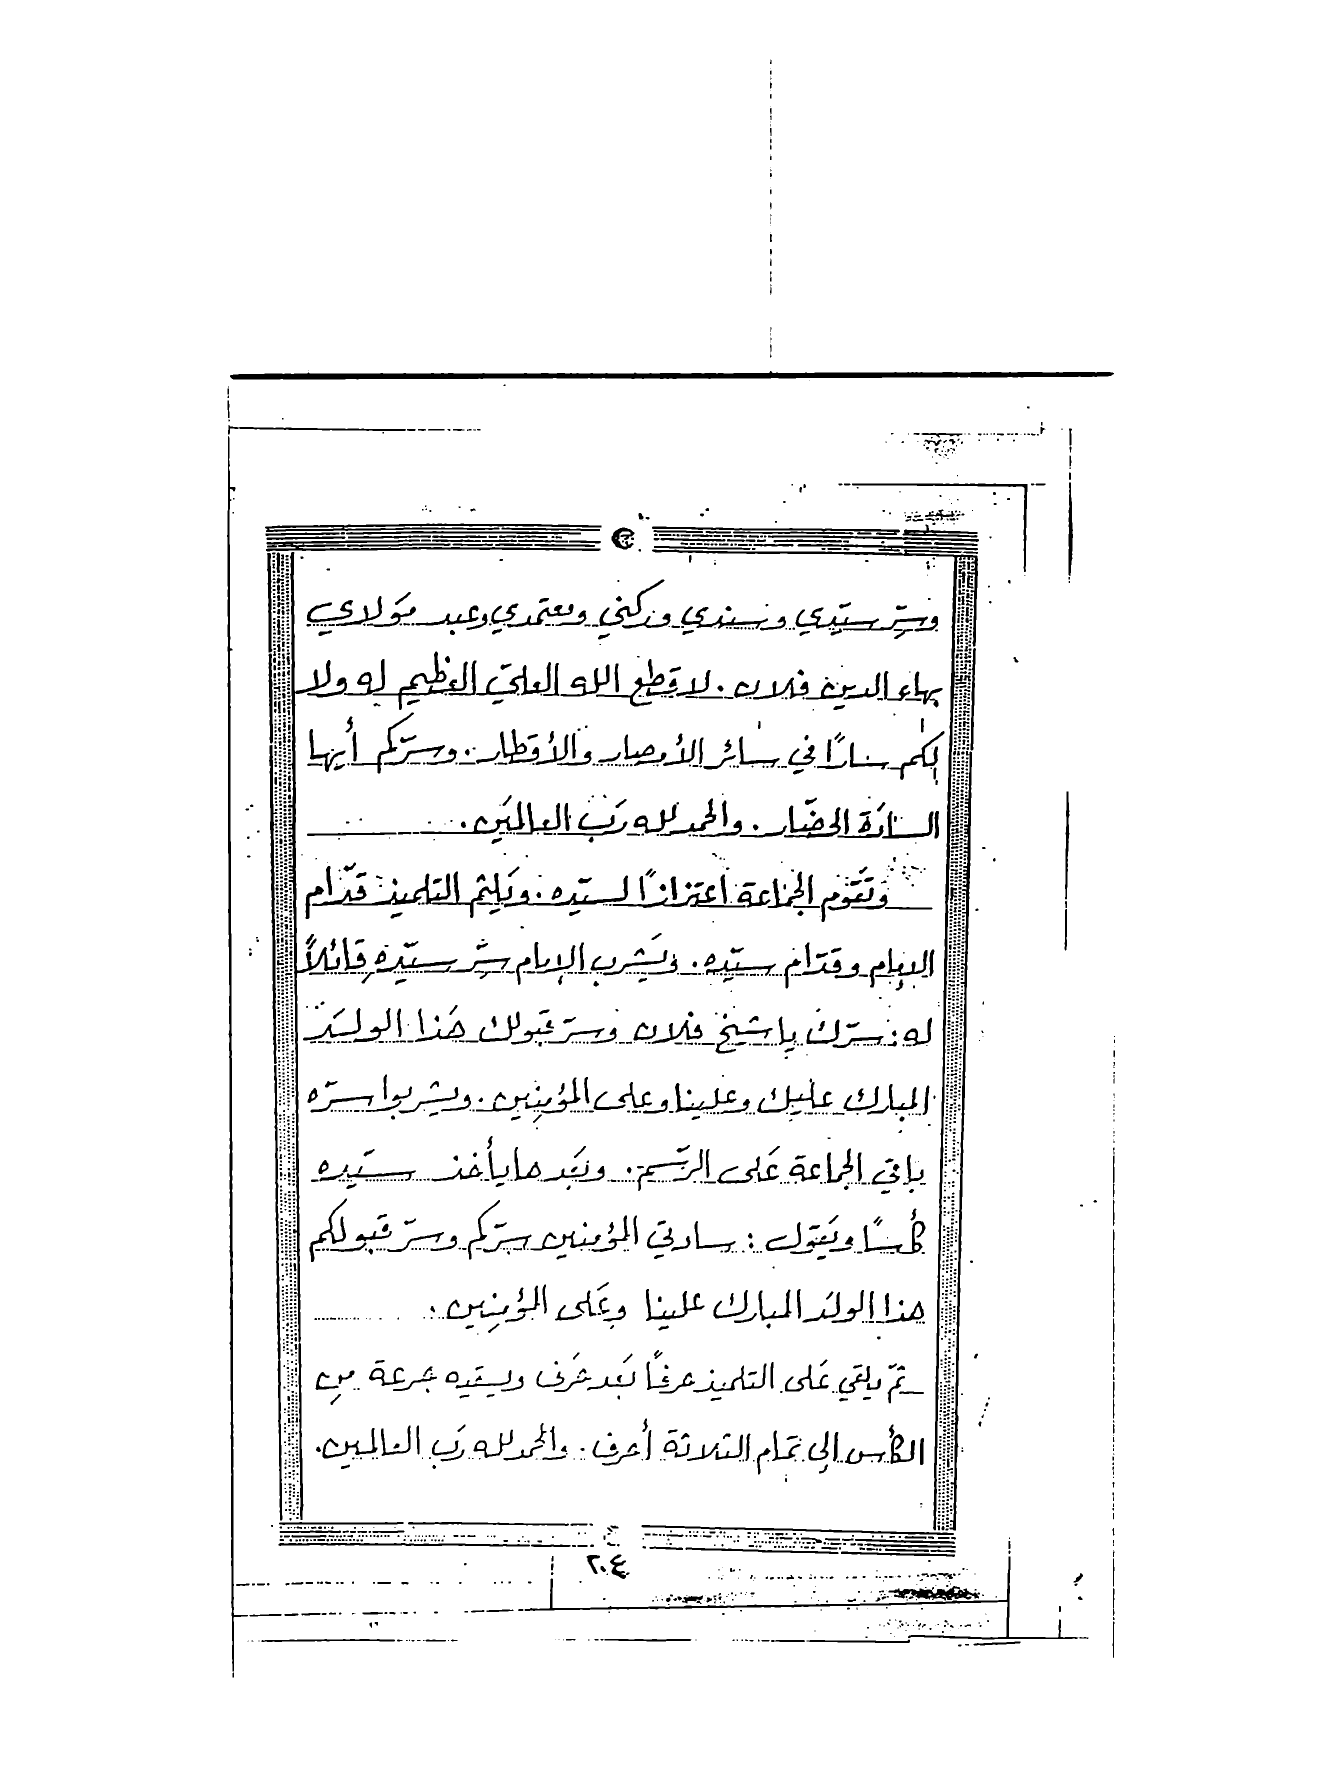 وسِرّ سيّدي وسندي وركني ومعتمدي وعبد مَولاي
بهاء الدين فلان . لا قطع الله العليّ العظيم له ولا
لكم منارًا في سائر الأمصار والأقطار . وسرّكم أيها
السادَة الحضّار . والحمد لله رَب العالمَين .
وتَقَوم الجَماعة اعتزازًا لسيّده . ويَلثم التلميذ قدّام
الإمام وقدّام سيّده . ويَشرب الإمام سِرّ سيّدهِ قائلاً
له : سرّك يا شيخ فلان وسرّ قبولك هَذا الولَد
المبارك عليك وعلينا وعلى المؤمِنين . ويشربوا سرّه
باقي الجماعة عَلى الرّسم . وبَعدها يأخذ سيّده
كأسًا ويَقول : سادتي المؤمنين سرّكم وسرّ قَبولكم
هذا الولَد المبارك علينا وعَلى المؤمِنين .
ثمّ يلقي عَلى التلميذ حرفًا بَعد حَرف ويسقيه جرعة مِن
الكأس إلى تمَام الثلاثة أحرف . والحمد لله رَب العالمين .
٢٠٤